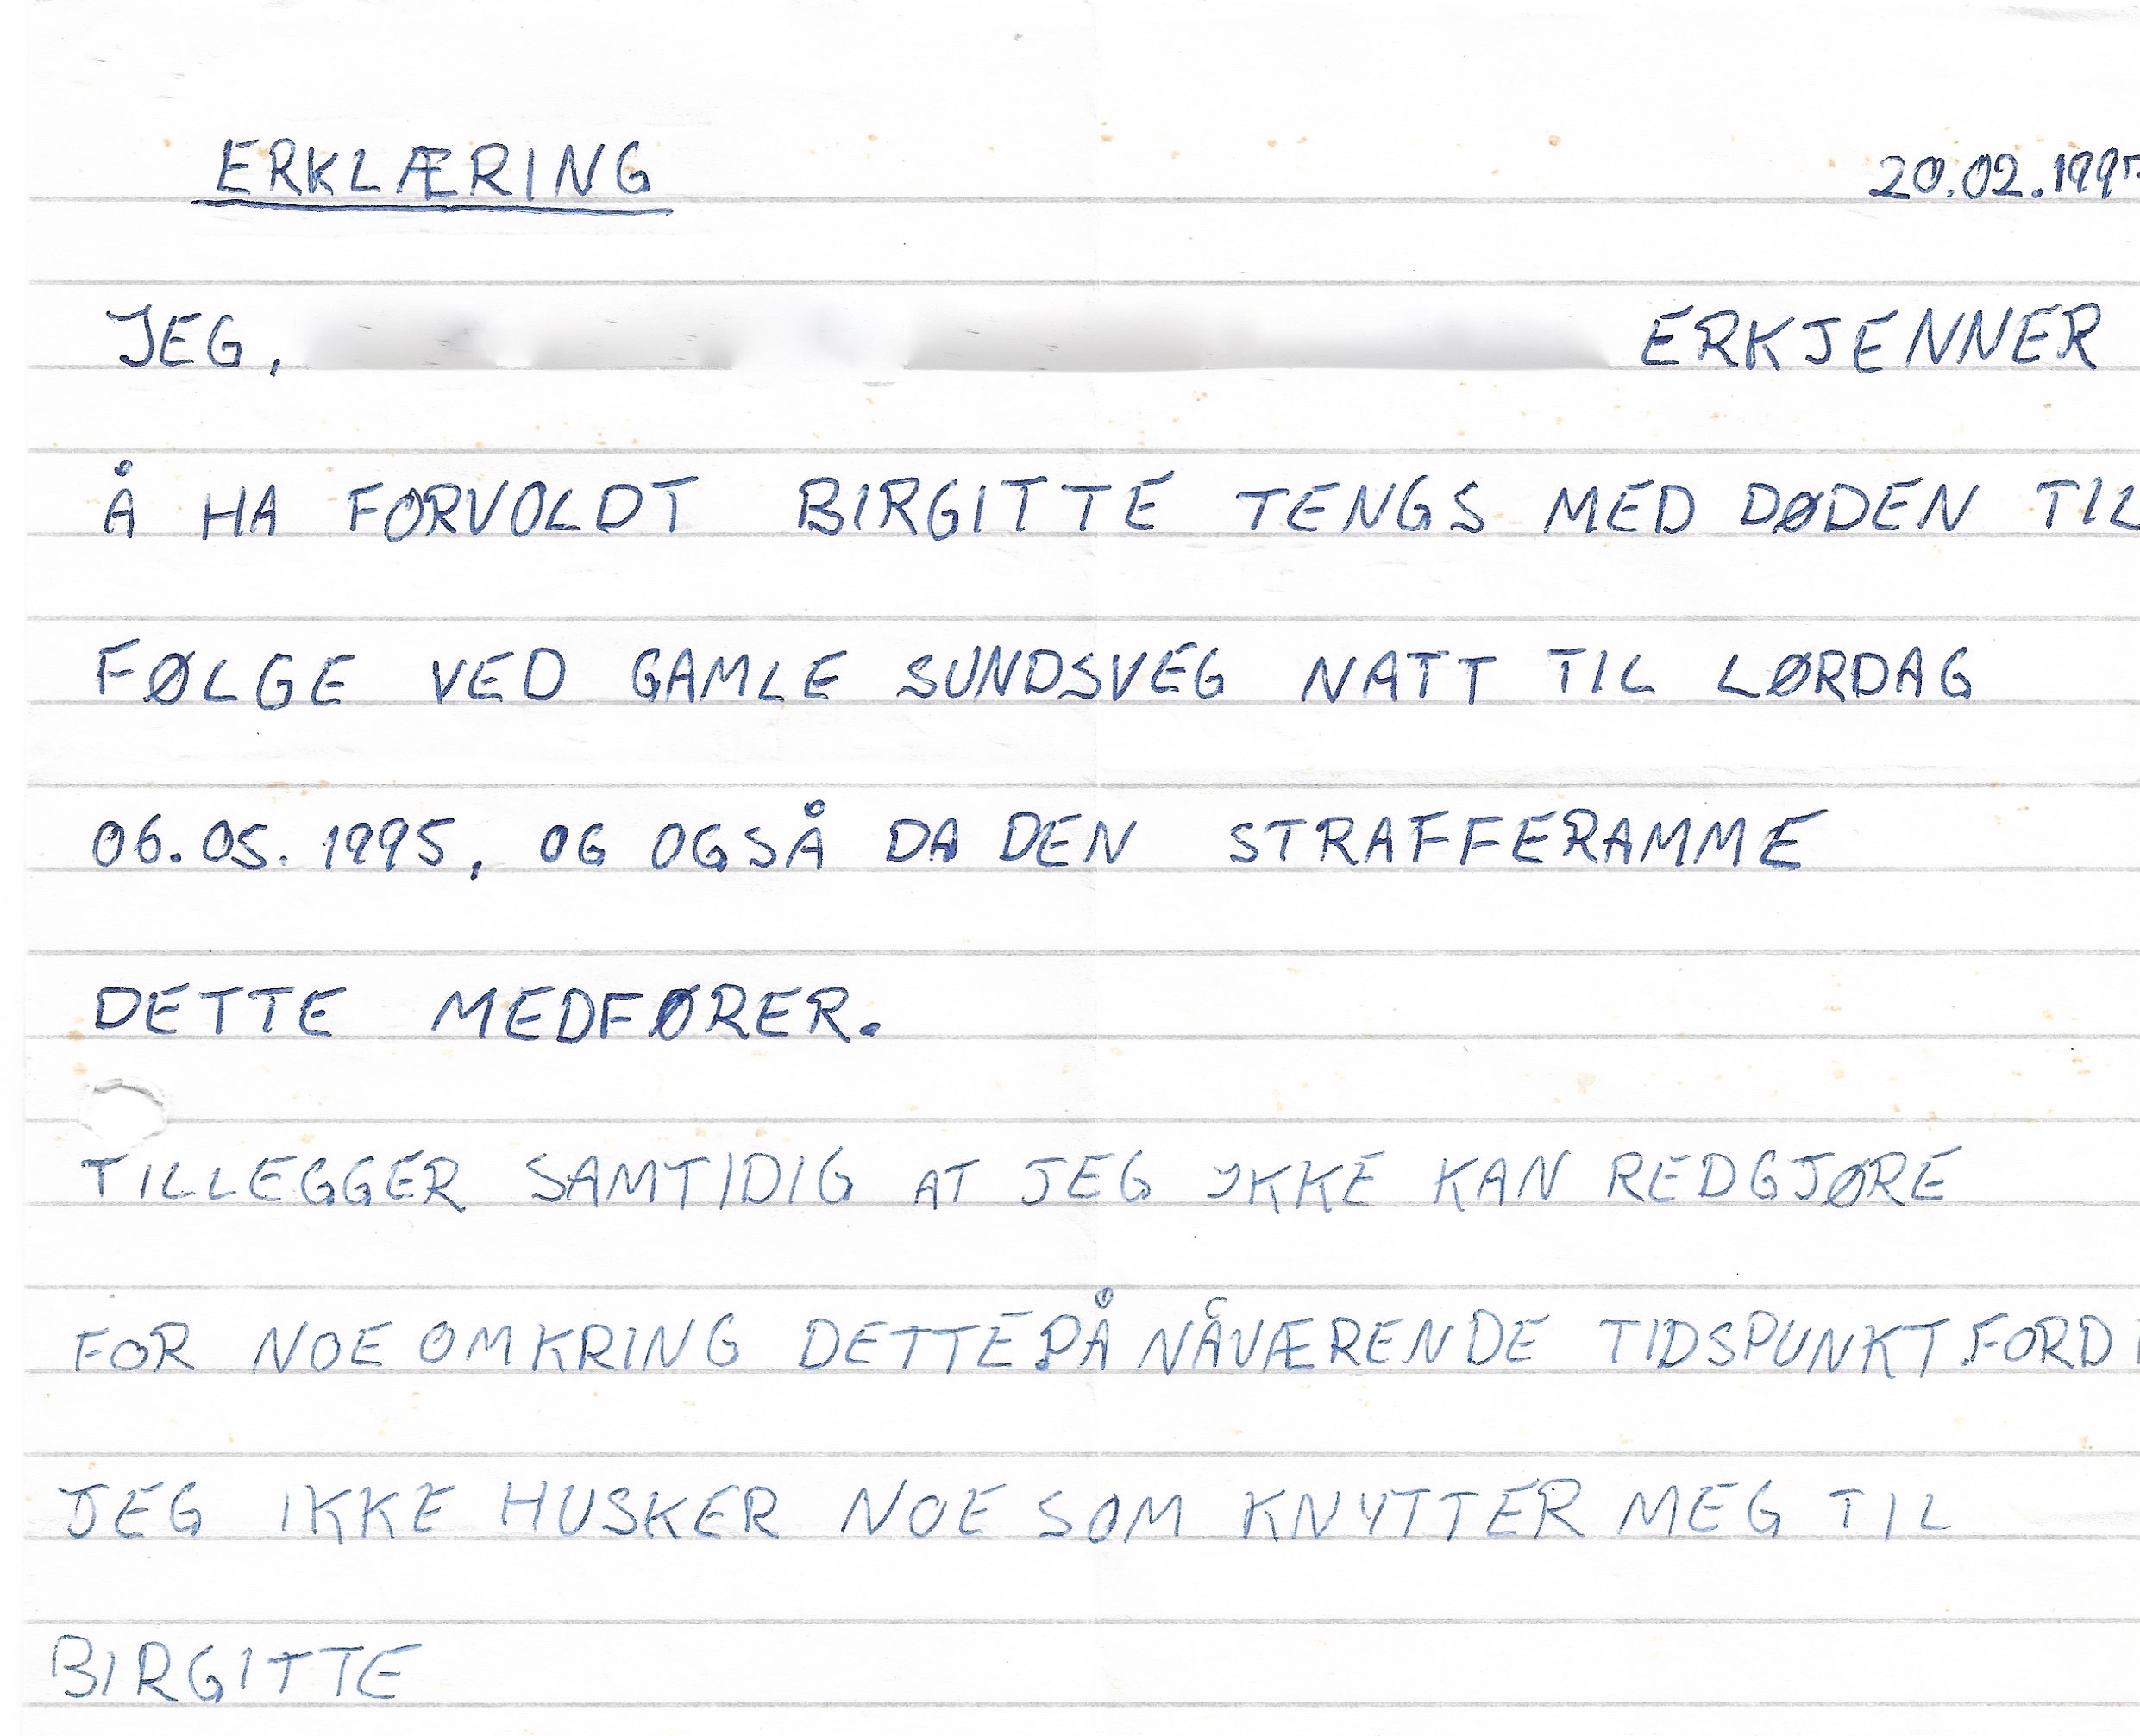 ERKLÆRING 20.02.199
JEG, ERKJENNER
Å HA FORVOLDT BIRGITTE TENGS MED DØDEN TIL
FØLGE VED GAMLE SUNDSVEG NATT TIL LØRDAG
06.05.1995, OG OGSÅ DA DEN STRAFFERAMME
DETTE MEDFØRER.
TILLEGGER SAMTIDIG AT JEG IKKE KAN REDGJØRE
FOR NOE OMKRING DETTE PÅ NÅVÆRENDE TIDSPUNKT FORDI
JEG IKKE HUSKER NOE SOM KNYTTER MEG TIL
BIRGITTE